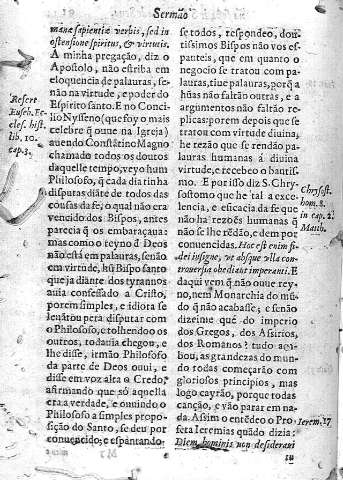 Sermão
manæ sapientiæ verbis, sed in
ostensione spiritus, & virtutis.
A minha pregação, diz o
Apostolo, não estriba em
eloquencia de palauras, se-
não na virtude, e poder do
Espirito santo. E no Conci-
lio Nysseno (que foy o mais
celebre q̃ ouue na Igreja)
auendo Constãtino Magno
chamado todos os doutos
daquelle tempo, veyo hum
Philosofo, q̃ cada dia tinha
disputas diãte de todos das
cousas da fe, o qual não era
vencido dos Bispos, antes
parecia q̃ os embaraçaua:
mas como o reyno d̃ Deos
não está em palauras, senão
em virtude, hũ Bispo santo
que ja diante dos tyrannos
auia confessado a Cristo,
porem simples, e idiota se
leuãtou pera disputar com
o Philosofo, e tolhendo os
outros, todauia chegou, e
lhe disse, irmão Philosofo
da parte de Deos ouui, e
disse em voz alta o Credo,
afirmando que só aquella
era a verdade, e ouuindo o
Philosofo a simples propo-
sição do Santo, se deu por
conuencido; e espantando-
Refert
Euseb. Ec-
cles. hist.
lib. 10.
cap. 3.
se todos, respondeo, dou-
tissimos Bispos não vos es-
panteis, que em quanto o
negocio se tratou com pa-
lauras, tiue palauras, porq̃ a
hũas não faltão outras, e a
argumentos não faltão re-
plicas: porem depois que se
tratou com virtude diuina,
he rezão que se rendão pa-
lauras humanas á diuina
virtude, e recebeo o bautis-
mo. E por isso diz S. Chry-
sostomo que he tal a exce-
lencia, e eficacia da fe que
não ha rezões humanas q̃
não se lhe rẽdão, e dem por
conuencidas. Hoc est enim fi-
dei insigne, vt absque vlla con-
trouersia obediant imperanti. E
daqui vem q̃ não ouue rey-
no, nem Monarchia do mũ-
do q̃ não acabasse; e senão
dizeime que do imperio
dos Gregos, dos Assirios,
dos Romanos? tudo aca-
bou, as grandezas do mun-
do rodas começarão com
gloriosos principios, mas
logo cayrão, porque todas
canção, e vão parar em na-
da. Assim o entẽdeo o Pro-
feta Ieremias quãdo dizia:
Diem hominis non desideraui
Chrysost.
hom. 8.
in cap. 2.
Matth.
Ierem. 17